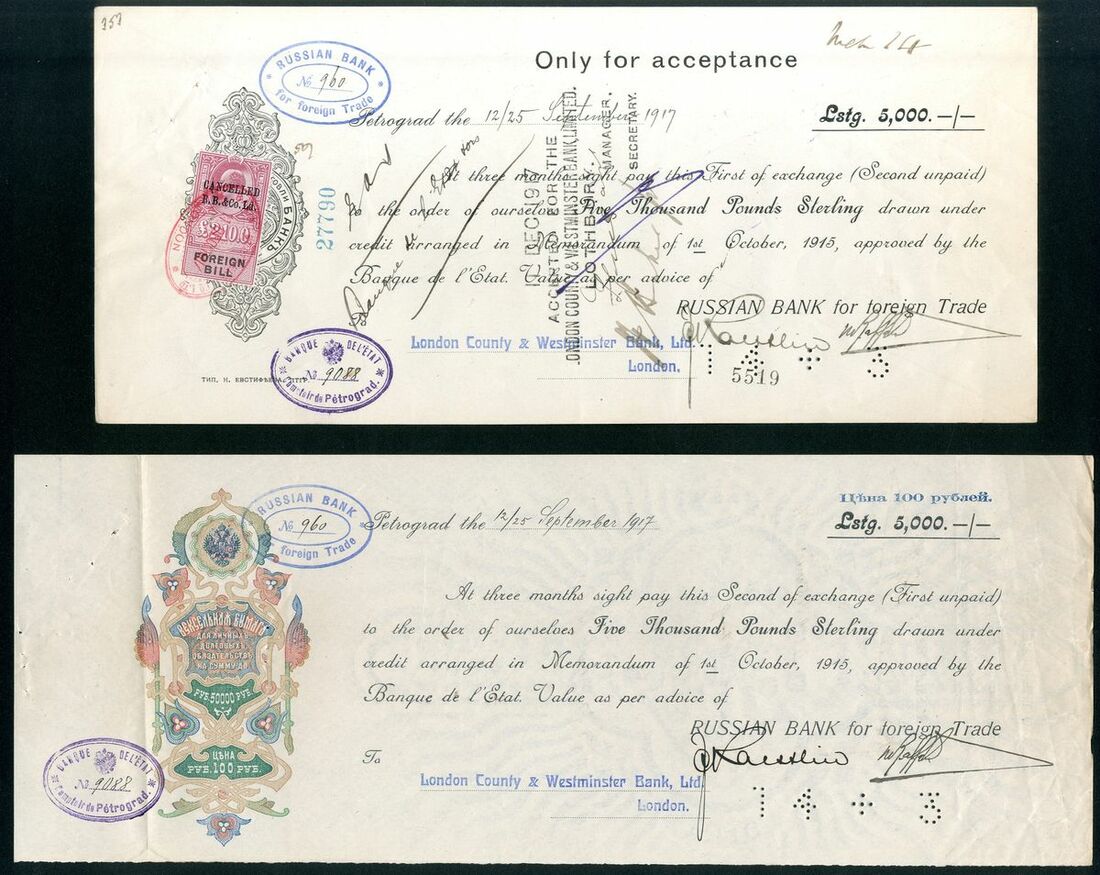 353
Only for acceptance
RUSSIAN BANK
№ 960
for foreign Trade
Petrograd the 12/25 September 1917
Lstg. 5,000.—/—
At three months sight pay this First of exchange (Second unpaid)
to the order of ourselves Five Thousand Pounds Sterling drawn under
credit arranged in Memorandum of 1st October, 1915, approved by the
Banque de l'Etat. Value as per advice of
RUSSIAN BANK for foreign Trade
London County & Westminster Bank, Ltd.
London.
5519
14 ÷ 3
27790
DEC 1917
ACCEPTED FOR THE
LONDON COUNTY & WESTMINSTER BANK, LIMITED.
LOTHBURY.
MANAGER.
SECRETARY.
CANCELLED
B. B. & Co. Ld.
£2.10.0
FOREIGN
BILL
БАНКЪ
BANQUE DE L'ÉTAT
№ 9088
Comptoir de Pétrograd.
ТИП. Н. ЕВСТИФѢЕВА
Цѣна 100 рублей.
Lstg. 5,000.—/—
RUSSIAN BANK
№ 960
foreign Trade
Petrograd the 12/25 September 1917
At three months sight pay this Second of exchange (First unpaid)
to the order of ourselves Five Thousand Pounds Sterling drawn under
credit arranged in Memorandum of 1st October, 1915, approved by the
Banque de l'Etat. Value as per advice of
RUSSIAN BANK for foreign Trade
To
London County & Westminster Bank, Ltd
London.
14 ÷ 3
ВЕКСЕЛЬНАЯ БУМАГА
ДЛЯ ЛИЧНЫХЪ
ДОЛГОВЫХЪ
ОБЯЗАТЕЛЬСТВЪ
НА СУММУ ДО
РУБ. 50000 РУБ.
ЦѢНА
РУБ. 100 РУБ.
BANQUE DE L'ÉTAT
№ 9088
Comptoir de Pétrograd.